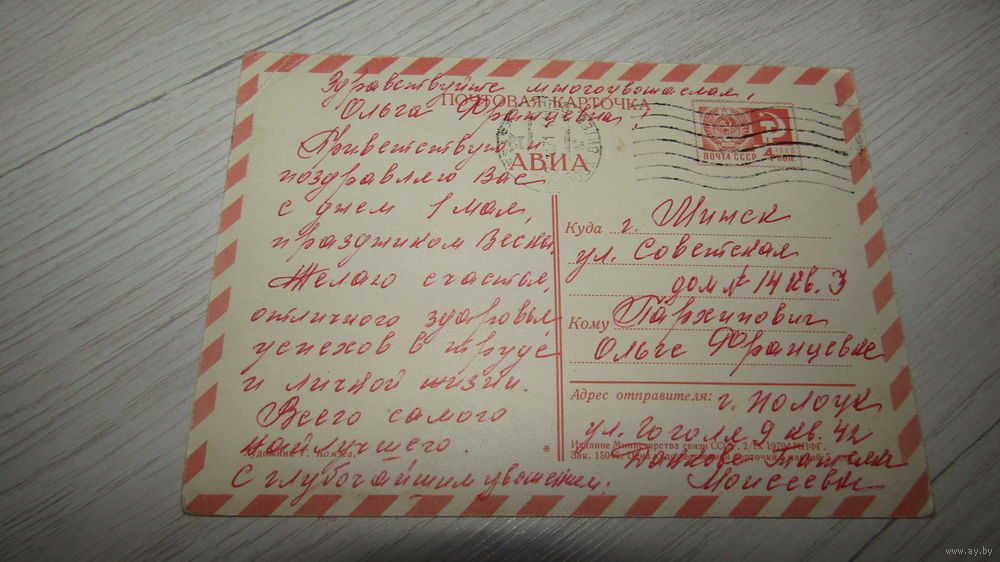 Здравствуйте многоуважаемая,
Ольга Францевна!
ПОЧТОВАЯ КАРТОЧКА
АВИА
Приветствую и
поздравляю Вас
с днем 1 мая,
праздником Весны.
Желаю счастья,
отличного здоровья
успехов в труде
и личной жизни.
Всего самого
наилучшего.
С глубочайшим уважением.
ПОЧТА СССР
4 коп.
1966
Куда г. Минск
ул. Советская
дом № 14 кв. 3
Кому Пархипович
Ольге Францевне
Адрес отправителя: г. Полоцк
ул. Гоголя 9 кв. 42
Издание Министерства связи СССР.
Моисеевны
www.ay.by